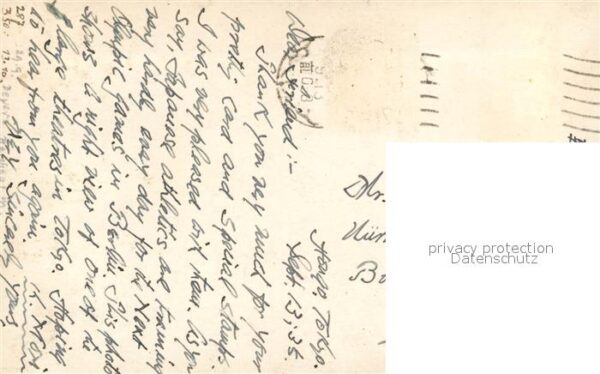 Tokyo.
Sept. 13, 35
Dear Friend :-
Thank you very much for your
pretty card and Special Stamps.
I was very pleased with them. As you
say, Japanese athletics are training
very hard every day for the Next
Olympic games in Berlin. This photo
Shows a night view of One of the
large theatres in Tokyo. Hoping
to hear from you again.
Very Sincerely yours
K. Mori
privacy protection
Datenschutz